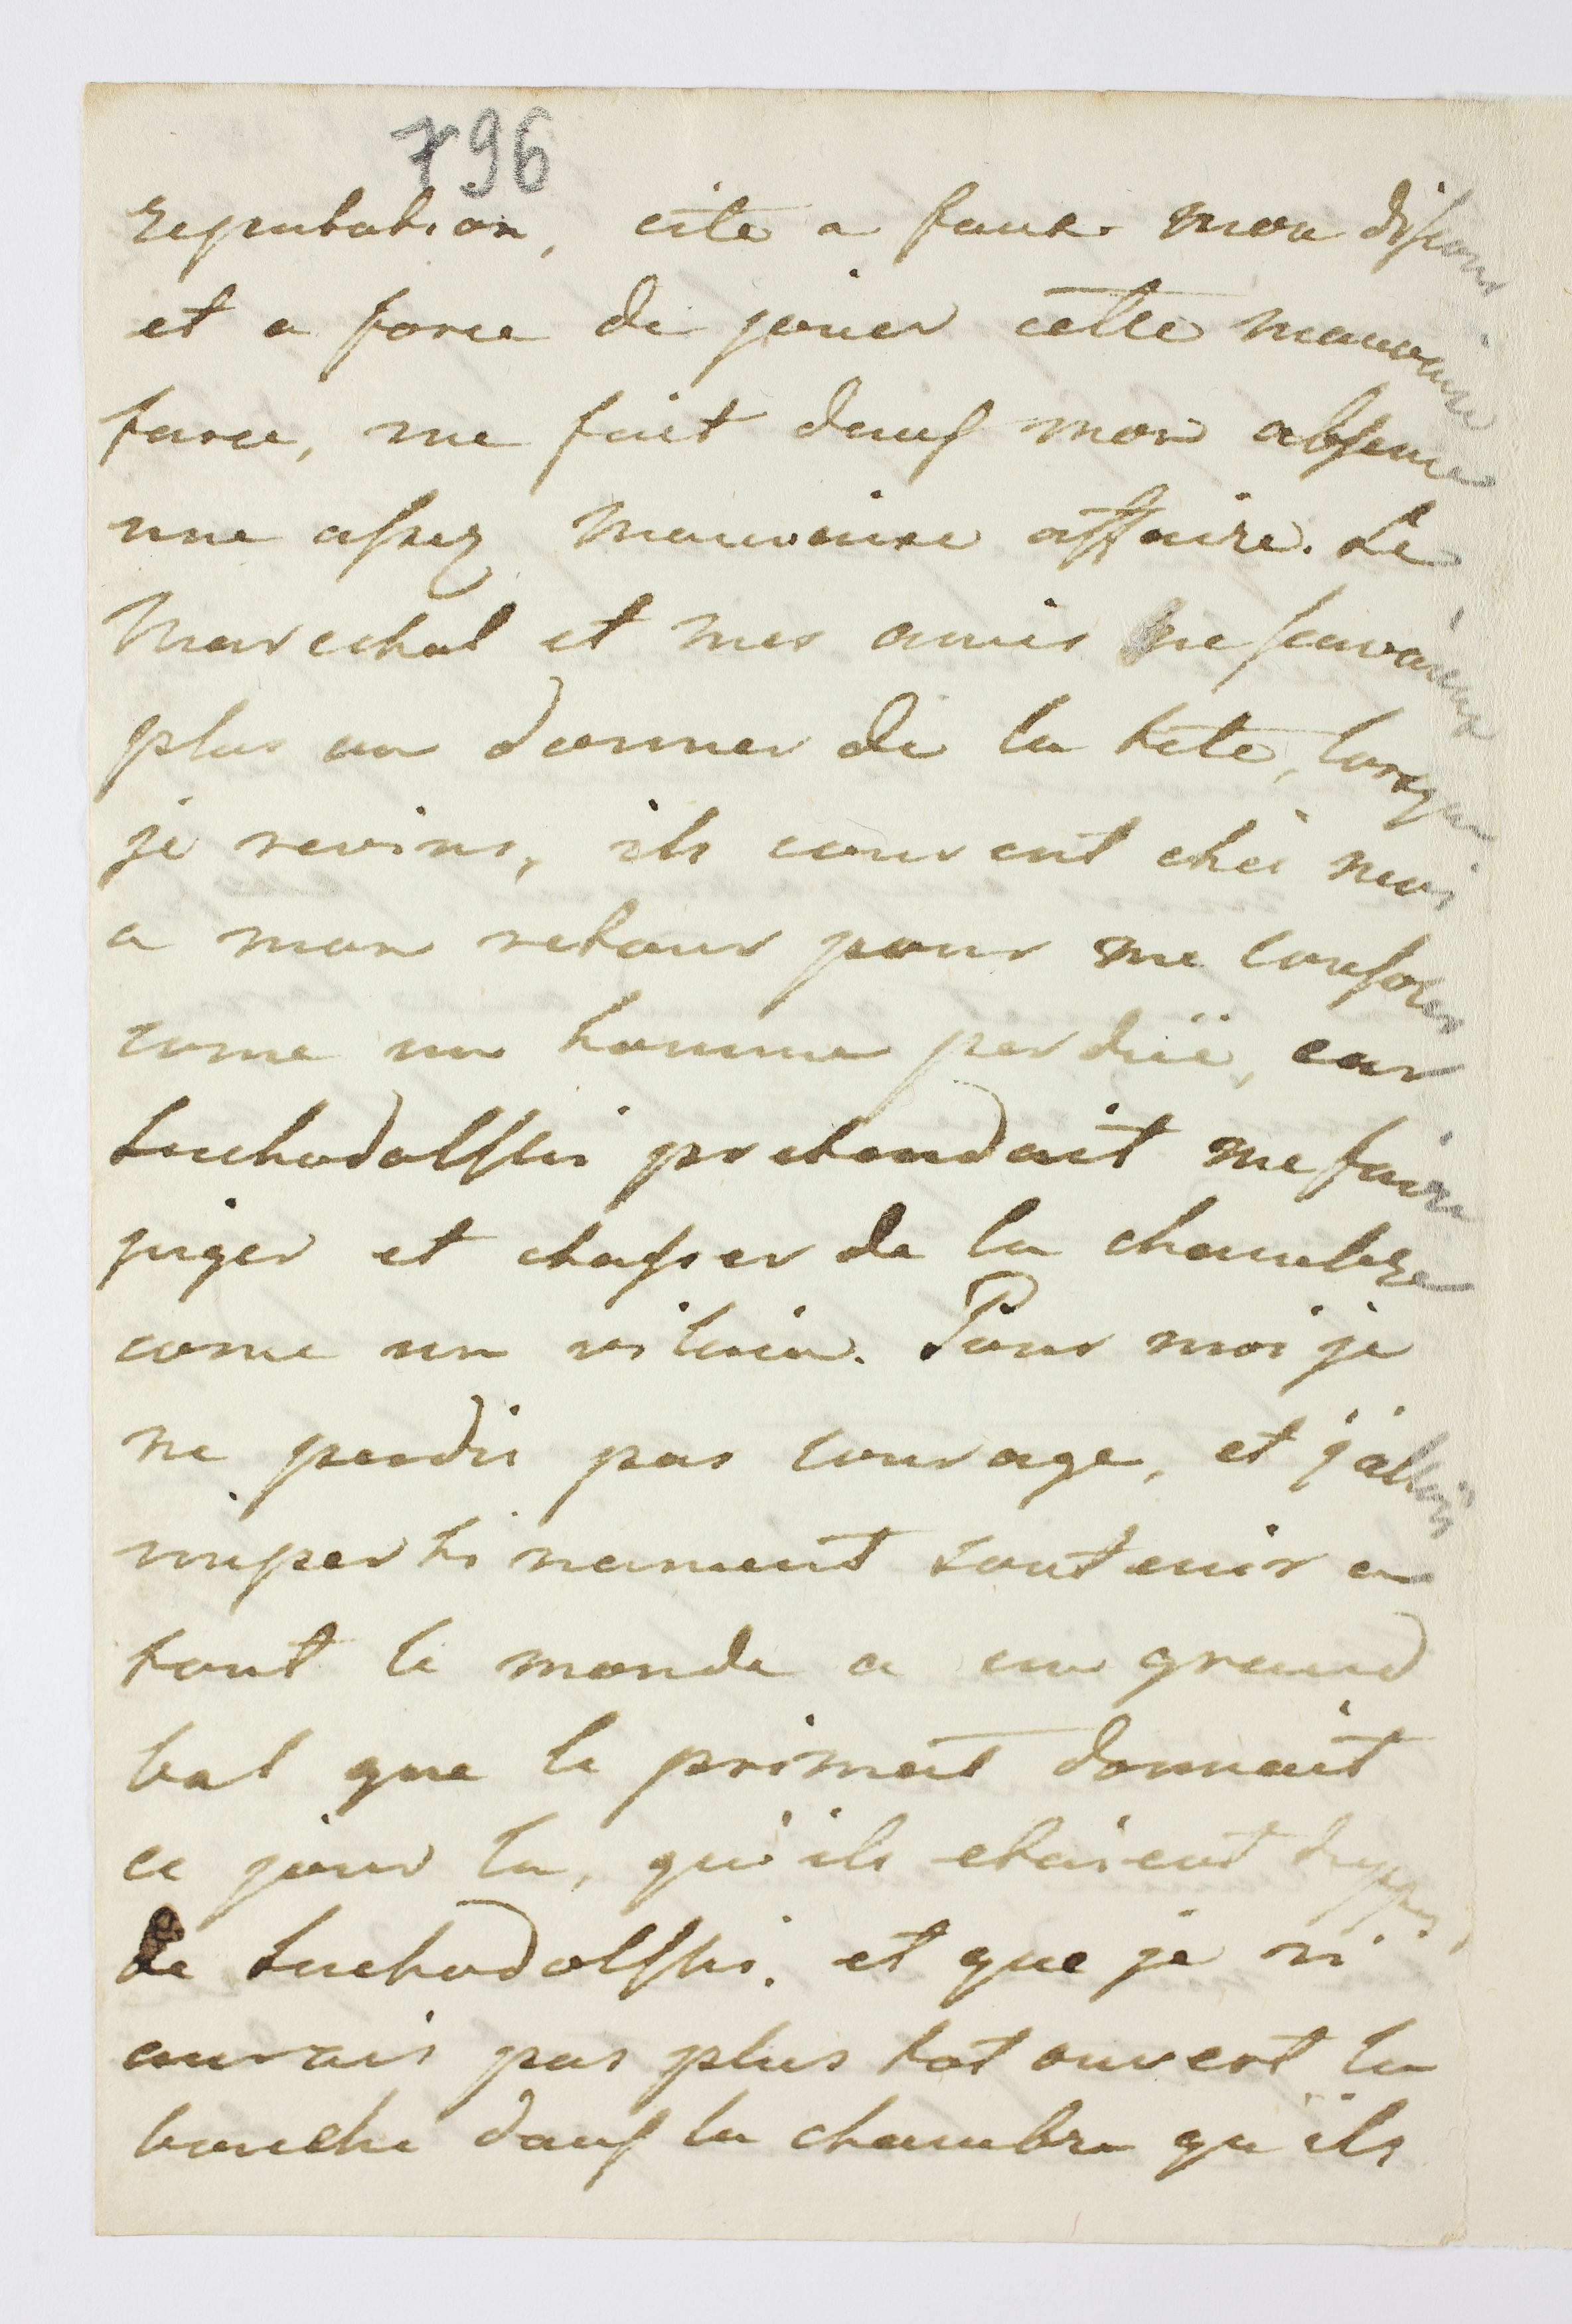 796
reputation, cite a faux mon discours
et a force de jouer cette mauvaise
farce, me fait dans mon absence
une assez mauvaise affaire. Le
Marechal et mes amis ne scavaient
plus ou donner de la tete, lorsque
je revins, ils courent chés moi
a mon retour pour me consoler
come un homme perdüe, car
Suchodolski pretendait me faire
juger et chasser de la chambre
come un vilain. Pour moi je
ne perdis pas courage, et j'allois
impertinement soutenir a
tout le monde a un grand
bal que le primat donnait
ce jour la, qu'ils etaient duppes
de Suchodolski. et que je n'
aurais pas plus tot ouvert la
bouche dans la chambre qu'ils